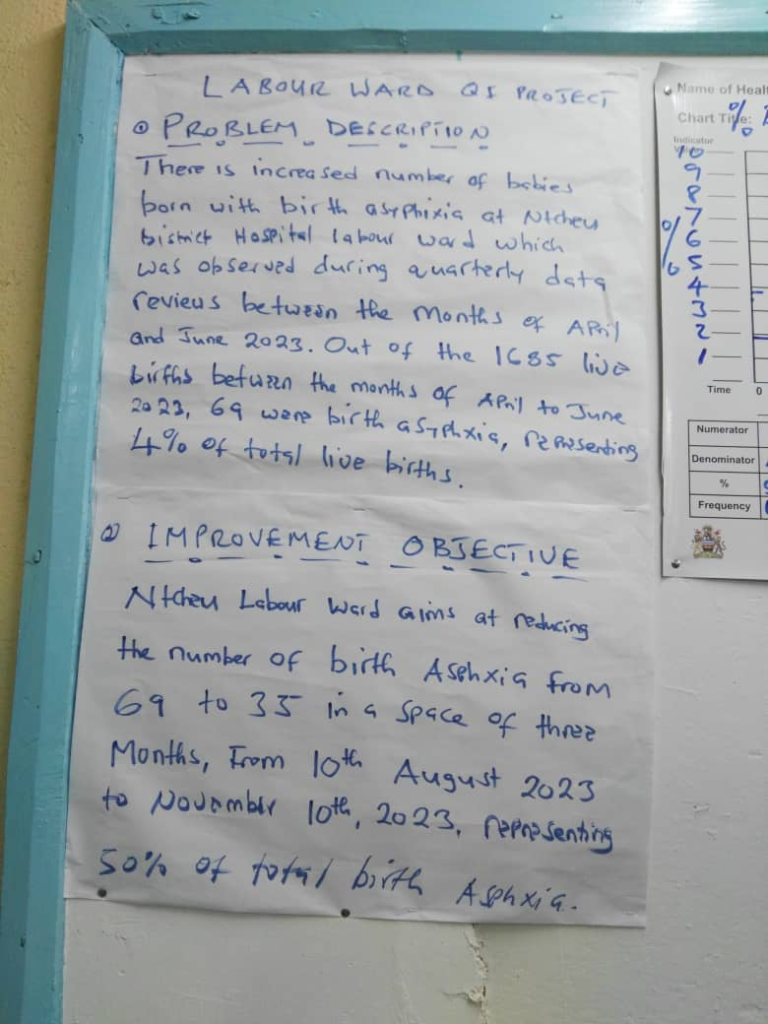 LABOUR WARD QI PROJECT
① PROBLEM DESCRIPTION
There is increased number of babies
born with birth asyphixia at Ntcheu
District Hospital labour ward which
was observed during quarterly data
reviews between the months of April
and June 2023. Out of the 1685 live
births between the months of April to June
2023, 69 were birth asyphxia, representing
4% of total live births.
② IMPROVEMENT OBJECTIVE
Ntcheu Labour Ward aims at reducing
the number of birth Asphxia from
69 to 35 in a space of three
Months, From 10th August 2023
to November 10th, 2023, representing
50% of total birth Asphxia.
Name of Healt
Chart Title: %
Indicator
10
9
8
7
6
5
4
3
2
1
%
Time 0
Numerator
Denominator
%
Frequency